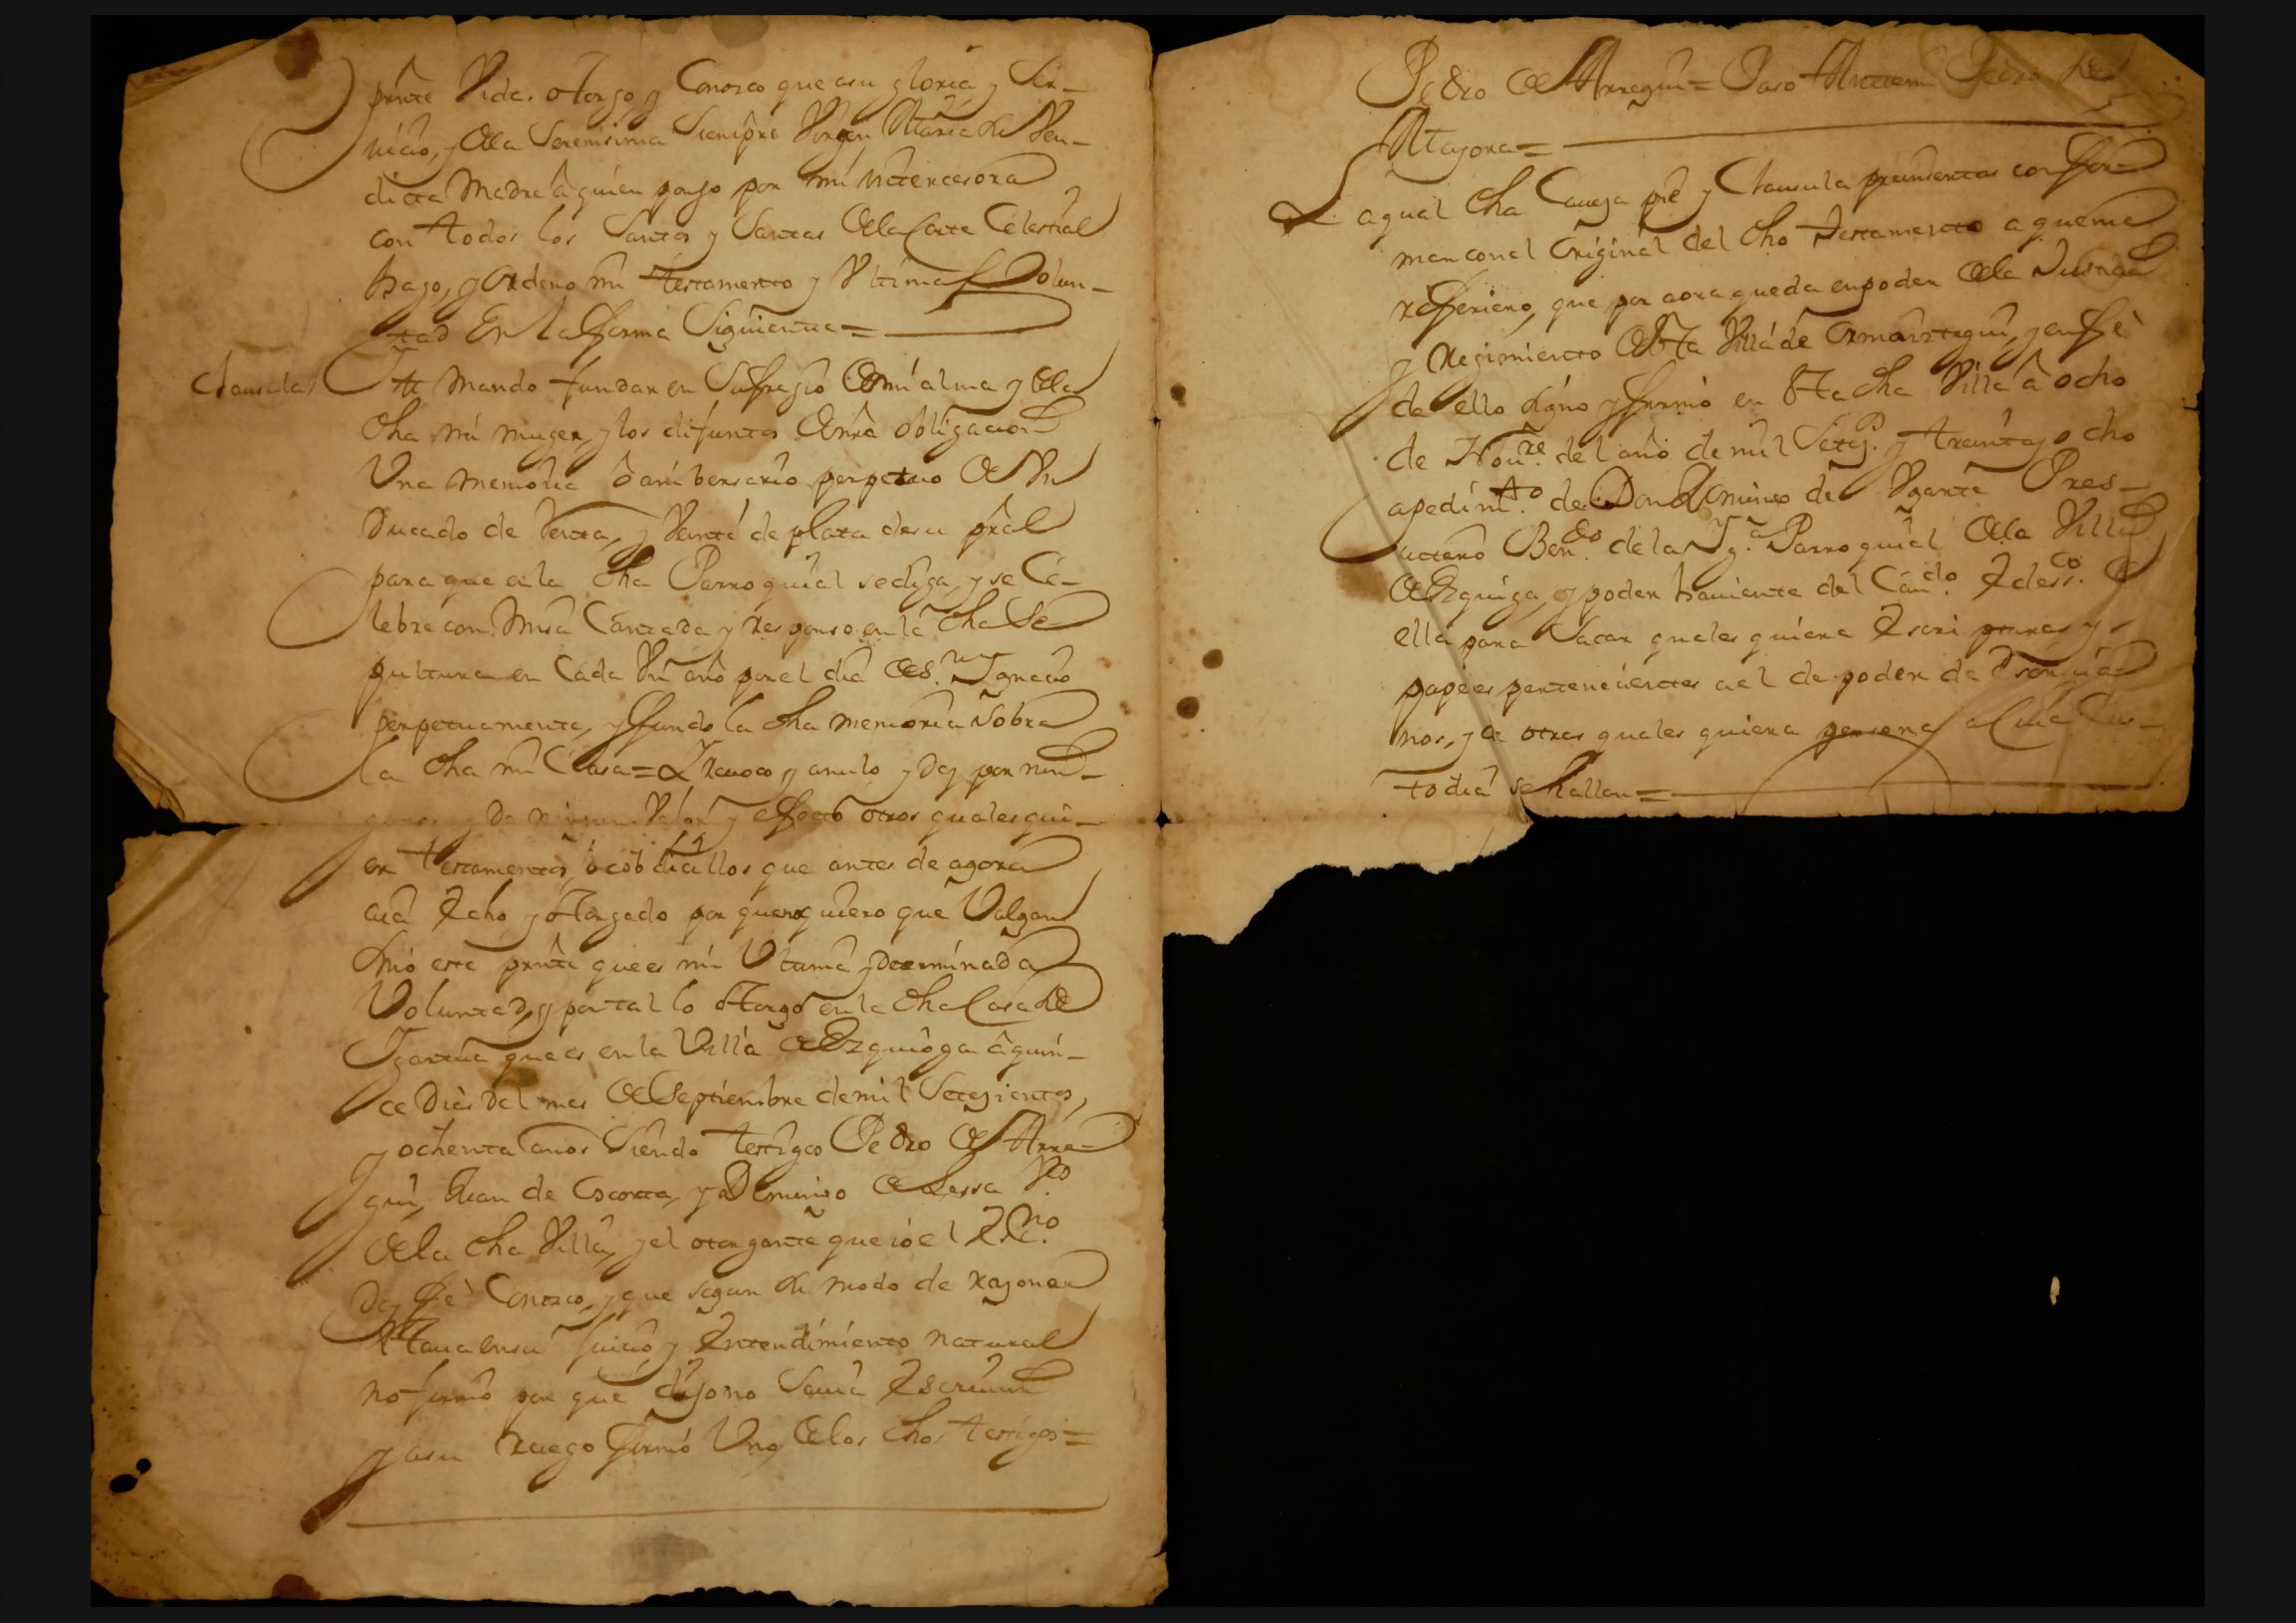 presste Vida. otorgo y Conosco que asu gloria, y Ser-
vicio, y de la Serenisima Siempre Virgen Maria su Ven-
dicta Madre â quien pongo por mi intercesora
con todos los Santos y Santas de la Corte Celestial
hago, y ordeno mi testamento y Vltima Volun-
tad En la forma Siguiente =
Clausula
Ytt mando fundar en Sufragio de mi alma y de la
dha mi muger, y los difuntos de nrâ obligacion
Vna memoria ô anibersario perpetuo de Vn
Ducado de Renta, y Veinte de plata de su prâl
para que en la dha Parroquial se diga, y se Ce-
lebre con Misa Cantada y Responso en la dha Se
pultura en Cada Vn año por el dia de S.n Ygnacio
perpetuamente, y fundo la dha memoria Sobre
la dha mi Casa = Y Reuoco y anulo y doy por nin-
gunos y de ningun Valor y efecto otros qualesqui-
er testamentos, ô cobdicillos que antes de agora
aia Echo y otorgado por que no quiero que Valgan
Sino este prnte que es mi Vltima y determinada
Voluntad, y por tal lo otorgo en la dha Casa de
Ygartua que es en la Villa de Ezquioga â quin-
ce Dias del mes de Septiembre de mil Setezientos,
y ochenta años Siendo testigos Pedro de Arre-
gui, Juan de Osorta, y Domingo de Lassa Vs
de la dha Villa, y el otorgante que io el Es.no
Doy feè Conozco, y que segun su modo de razonar
estaua en su juicio, y Entendimiento natural
no firmo por que dijo no Sauia Escriuir
y a su Ruego firmó Vno de los dhos testigos =
Pedro de Arregui = Paso Ante mi Pedro de
Mayora =
La qual dha Caueza pie y Clausula preinsertas confor-
man con el original del dho testamento a que me
refiero, que por aora queda en poder de la Justicia
y Regimiento de esta Villa de Ormaiztegui, y en feè
de ello signo y firmo en esta dha Villa â ocho
de Nou.re del año de mil Setez.s y treinta y ocho
a pedim.to de Don Domingo de Vgarte Pres-
uitero Ben.do de la Yg.a Parroquial de la Villa
de Ezquiga, y poder hauiente del Cau.do Ecless.co de
ella para Sacar quales quiera Escripturas y
papeles pertenecientes a el de poder de Escriua
nos, y de otras quales quiera persona a Cuia Cus-
todia se hallen =